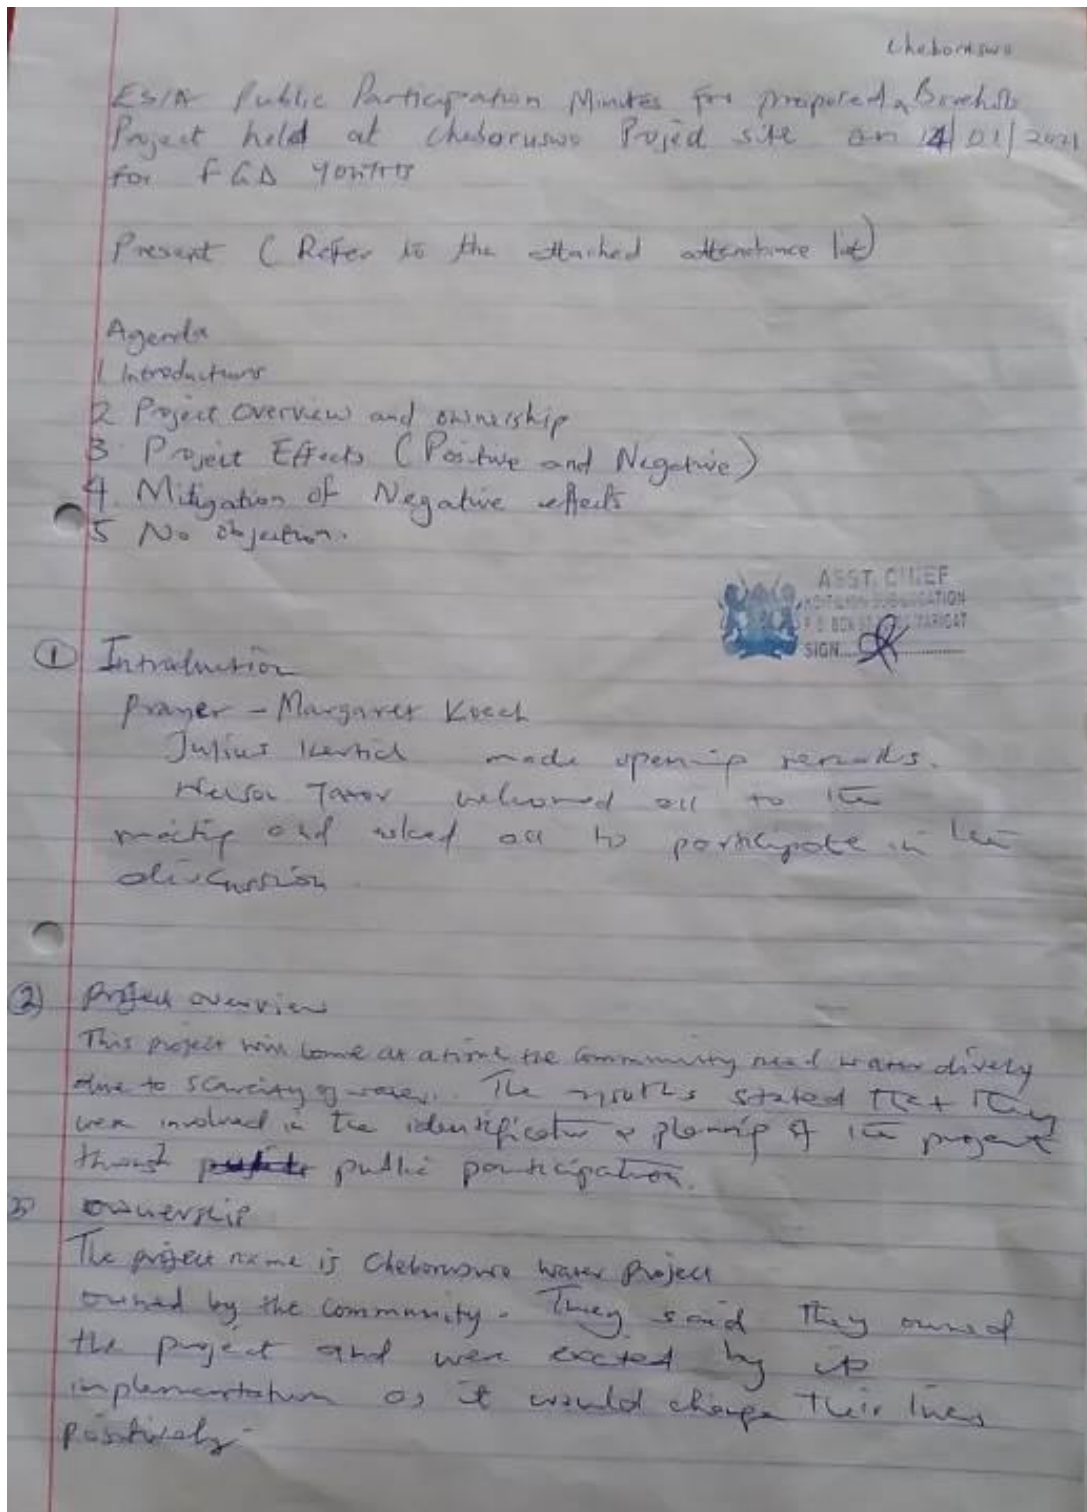 Cheboruswo
ESIA Public Participation Minutes for proposed Borehole
Project held at Cheboruswo Project site on 14/01/2021
for FGD youths
Present (Refer to the attached attendance list)
Agenda
1 Introductions
2 Project overview and ownership
3 Project Effects (Positive and Negative)
4. Mitigation of Negative effects
5 No objection.
ASST. CHIEF
SIGN
① Introduction
Prayer - Margaret Koech
Julius made opening remarks.
welcomed all to the
meeting and asked all to participate in the
discussion
② Project overview
This project will come at a time the community need water
due to scarcity of water. The youths stated that they
were involved in the identification & planning of the project
public participation.
3) ownership
The project name is Cheboruswo Water Project
owned by the community. They said they owned
the project and were excited by its
implementation as it would change their lives
positively.